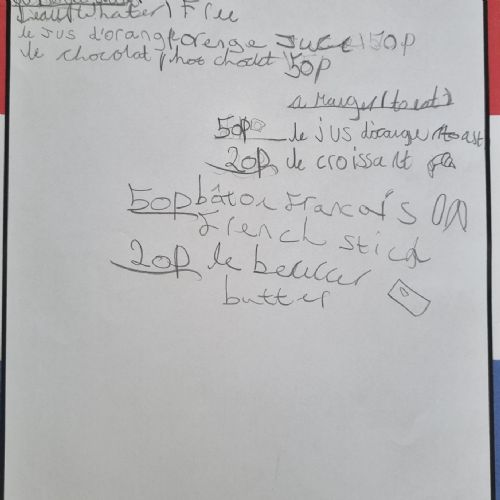 Leau (Whater) Free
le jus d'orange orenge Juce 50p
le chocolat / hot choclet 50p
a manger (to eat)
50p le jus d'orange toast
20p le croissant
50p bâton francais
French stick
20p le beurer
butter